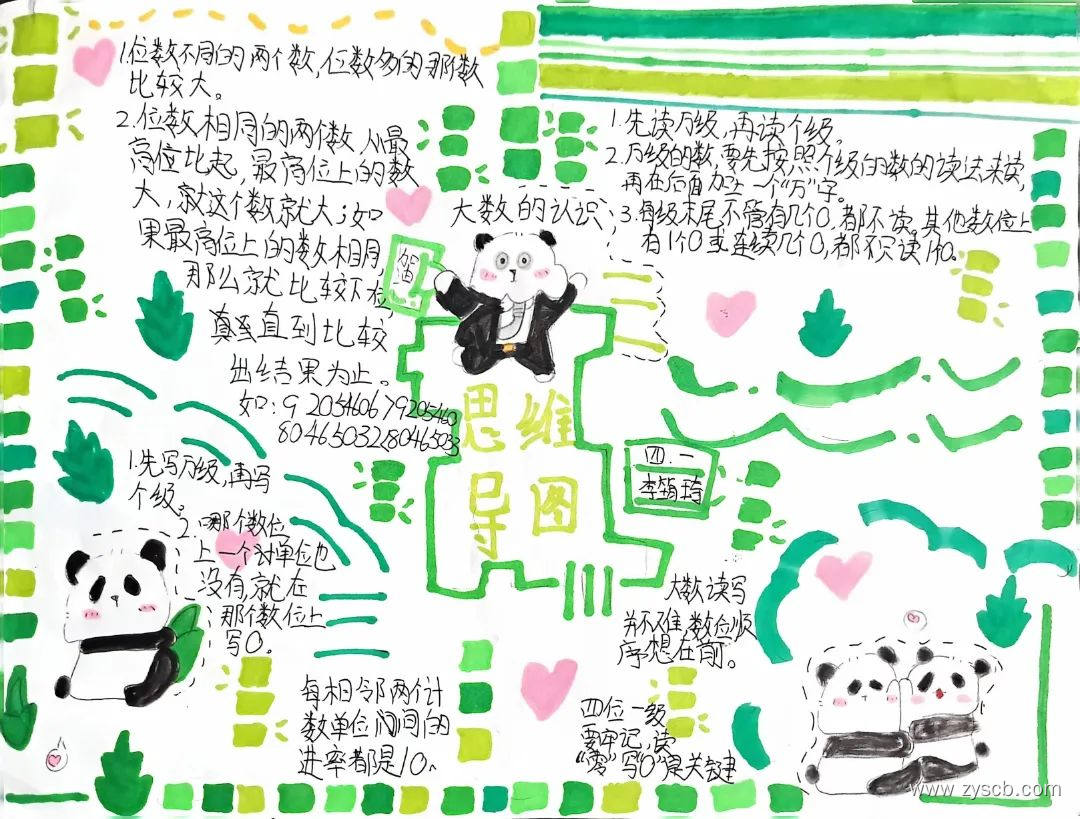 1.位数不同的两个数,位数多的那个数
比较大。
2.位数相同的两个数,从最
高位比起,最高位上的数
大,就这个数就大;如
果最高位上的数相同
那么就比较下
直到比较
出结果为止。
如:9205460679205460
8046503228046503
1.先读万级,再读个级。
2.万级的数,要先按照个级的数的读法来读,
再在后面加上一个“万”字。
3.每级末尾不管有几个0,都不读。其他数位上
有1个0或连续几个0,都只读1个0。
大数的认识
加油
思维
导图
四.一
李筠琦
1.先写万级,再写
个级。
2.哪个数位
上一个计单位也
没有,就在
那个数位上
写0。
每相邻两个计
数单位间的
进率都是10。
大数读写
并不难,数位顺
序想在前。
四位一级
要牢记,读
“零”写“0”是关键
www.zyscb.com